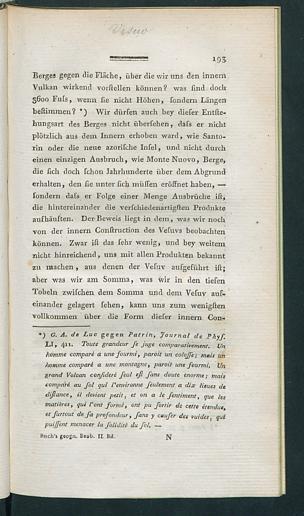 Vesuv
193
Berges gegen die Fläche, über die wir uns den innern
Vulkan wirkend vorstellen können? was sind doch
3600 Fuſs, wenn sie nicht Höhen, sondern Längen
bestimmen? *) Wir dürfen auch bey dieser Entste-
hungsart des Berges nicht übersehen, daſs er nicht
plötzlich aus dem Innern erhoben ward, wie Santo-
rin oder die neue azorische Insel, und nicht durch
einen einzigen Ausbruch, wie Monte Nuovo, Berge,
die sich doch schon Jahrhunderte über dem Abgrund
erhalten, den sie unter sich müssen eröffnet haben, —
sondern daſs er Folge einer Menge Ausbrüche ist,
die hintereinander die verschiedenartigsten Produkte
aufhäuften. Der Beweis liegt in dem, was wir noch
von der innern Construction des Vesuvs beobachten
können. Zwar ist das sehr wenig, und bey weitem
nicht hinreichend, uns mit allen Produkten bekannt
zu machen, aus denen der Vesuv aufgeführt ist;
aber was wir am Somma, was wir in den tiefen
Tobeln zwischen dem Somma und dem Vesuv auf-
einander gelagert sehen, kann uns zum wenigsten
vollkommen über die Form dieser innern Con-
*) G. A. de Luc gegen Patrin, Journal de Phyſ.
LI, 421. Toute grandeur ſe juge comparativement. Un
homme comparé a une fourmi, paroit un coloſſe; mais un
homme comparé a une montagne, paroit une fourmi. Un
grand Vulcan conſideré ſeul eſt ſans doute enorme; mais
comparé au ſol qui l'environne ſeulement a dix lieues de
diſtance, il devient petit, et on a le ſentiment, que les
matières, qui l'ont formé, ont pu ſortir de cette étendue,
et ſurtout de ſa profondeur, ſans y cauſer des vuides, qui
puiſſent menacer la ſolidité du ſol. —
Buch's geogn. Beob. II. Bd. N